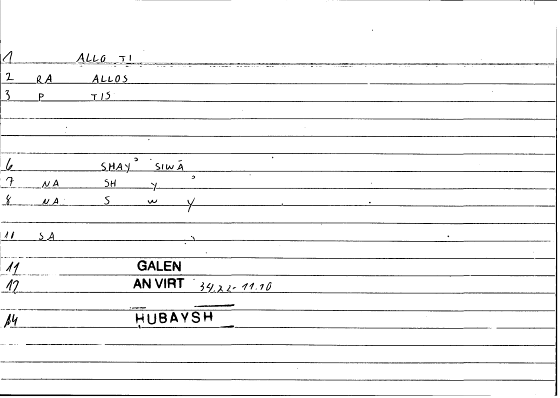 1 ALLO TI
2 RA ALLOS
3 P TIS
6 SHAYʾ SIWĀ
7 NA SH Y ʾ
8 NA S W Y
11 SA
11 GALEN
12 AN VIRT 34.22-11.10
14 ḤUBAYSH